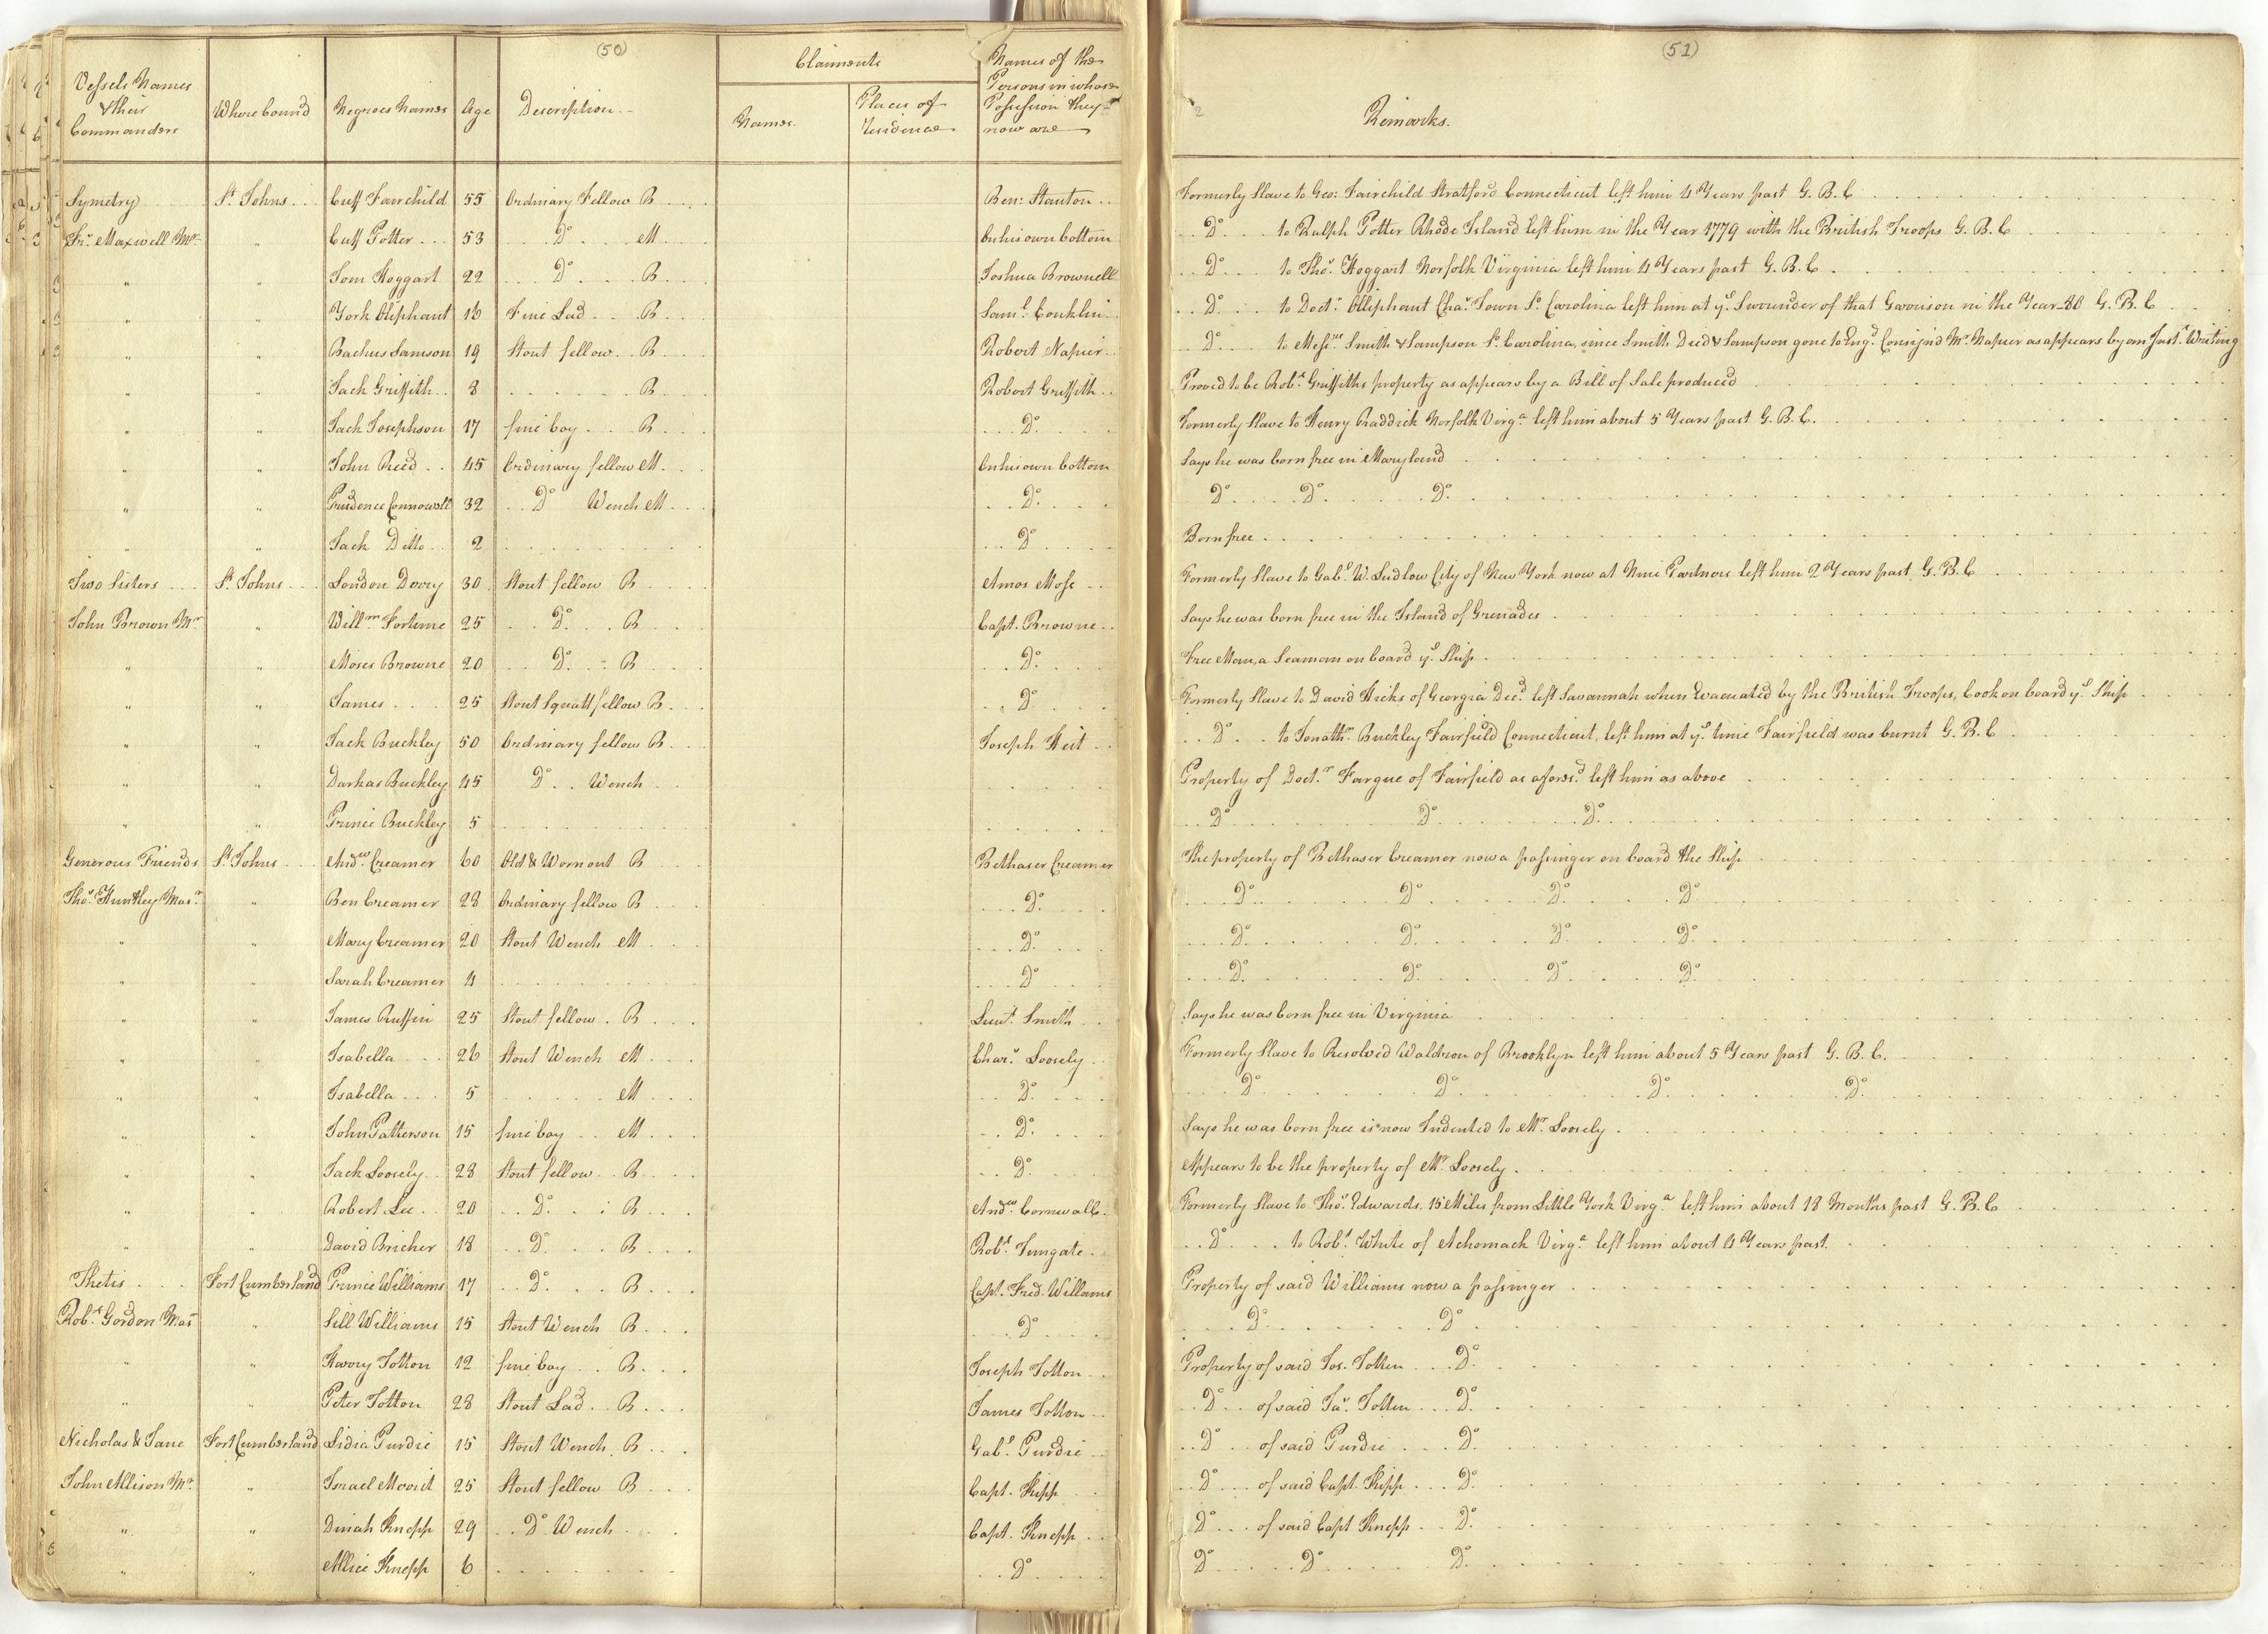 (50)
Vessels Names & their Commanders | Where bound | Negroes Names | Age | Description | Claimants | Names of the Persons in whose Possession they now are
Names. | Places of Residence
(51)
Remarks.
Symetry | St. Johns | Cuff Fairchild | 55 | Ordinary Fellow B | Ben: Stanton | Formerly Slave to Geo: Fairchild Stratford Connecticut left him 4 Years past G. B. C
Frs. Maxwell Mr. | " | Cuff Potter | 53 | Do. M | On his own bottom | Do. to Ralph Potter Rhode Island left him in the Year 1779 with the British Troops G. B. C
" | " | Tom Hoggart | 22 | Do. B | Joshua Brownell | Do. to Thos. Hoggart Norfolk Virginia left him 4 Years past G. B. C
" | " | York Oliphant | 16 | Fine Lad B | Saml. Conklin | Do. to Doctr. Olliphant Chas. Town So. Carolina left him at ye. Surrender of that Garrison in the Year 80 G. B. C
" | " | Bachus Samson | 19 | Stout fellow B | Robert Napier | Do. to Messrs. Smith & Sampson So. Carolina, since Smith Died & Sampson gone to Engd. Consign'd Mr. Napier as appears by an Inst. Writing
" | " | Jack Griffith | 8 | B | Robert Griffith | Proved to be Robt. Griffiths property as appears by a Bill of Sale produced
" | " | Jack Josephson | 17 | fine boy B | Do. | Formerly Slave to Henry Braddick Norfolk Virga. left him about 5 Years past G. B. C.
" | " | John Reed | 45 | Ordinary fellow M | On his own bottom | Says he was born free in Maryland
" | " | Prudence Connowell | 32 | Do. Wench M | Do. | Do. Do. Do.
" | " | Jack Ditto | 2 | Do. | Born free
Two Sisters | St. Johns | London Dovry | 30 | Stout fellow B | Amos Mose | Formerly Slave to Gabl. W. Ludlow City of New York now at Nine Partners left him 2 Years past G. B. C
John Brown Mr | " | Willm Fortune | 25 | Do. B | Capt. Browne | Says he was born free in the Island of Grenades
" | " | Moses Browne | 20 | Do. B | Do. | Free Man, a Seaman on board ye. Ship
" | " | James | 25 | Stout Squatt fellow B | Do. | Formerly Slave to David Hicks of Georgia Decd. left Savannah when Evacuated by the British Troops, Cook on board ye. Ship
" | " | Jack Buckley | 50 | Ordinary fellow B | Joseph Heit | Do. to Jonathn. Buckley Fairfield Connecticut, left him at ye. time Fairfield was burnt G. B. C
" | " | Darkas Buckley | 45 | Do. Wench | Property of Doctr. Fargue of Fairfield as aforesd. left him as above
" | " | Prince Buckley | 5 | Do. Do. Do.
Generous Friends | St. Johns | Andw. Creamer | 60 | Old & Worn out B | Bethaser Creamer | The property of Bethaser Creamer now a passinger on board the Ship
Thos. Huntley Masr. | " | Ben Creamer | 28 | Ordinary fellow B | Do. | Do. Do. Do. Do.
" | " | Mary Creamer | 20 | Stout Wench M | Do. | Do. Do. Do. Do.
" | " | Sarah Creamer | 4 | Do. | Do. Do. Do. Do.
" | " | James Ruffin | 25 | Stout fellow B | Lieut. Smith | Says he was born free in Virginia
" | " | Isabella | 26 | Stout Wench M | Chars. Loosely | Formerly Slave to Resolved Waldron of Brooklyn left him about 5 Years past G. B. C.
" | " | Isabella | 5 | M | Do. | Do. Do. Do. Do.
" | " | John Patterson | 15 | fine boy M | Do. | Says he was born free is now Indented to Mr. Loosely
" | " | Jack Loosely | 28 | Stout fellow B | Do. | Appears to be the property of Mr. Loosely
" | " | Robert Lee | 20 | Do. B | Andw. Cornwall | Formerly Slave to Thos. Edwards. 15 Miles from Little York Virga. left him about 18 Months past G. B. C
" | " | David Bricher | 18 | Do. B | Robt. Tungate | Do. to Robt. White of Achomack Virga. left him about 4 Years past.
Thetis | Fort Cumberland | Prince Williams | 17 | Do. B | Capt. Fred. Williams | Property of said Williams now a passinger
Robt. Gordon Masr | " | Sill Williams | 15 | Stout Wench B | Do | Do. Do
" | " | Harry Totton | 12 | fine boy B | Joseph Totton | Property of said Jos. Totten Do.
" | " | Peter Totton | 28 | Stout Lad B | James Totton | Do. of said Jas. Totten Do.
Nicholas & Jane | Fort Cumberland | Lidia Purdie | 15 | Stout Wench B | Gabl. Purdie | Do. of said Purdie Do.
John Allison Mr. | " | Israel Movit | 25 | Stout fellow B | Capt. Kipp | Do. of said Capt. Kipp Do.
" | " | Dinah Knepp | 29 | Do. Wench | Capt. Knepp | Do. of said Capt Knepp Do.
" | " | Allice Knepp | 6 | Do | Do Do Do.